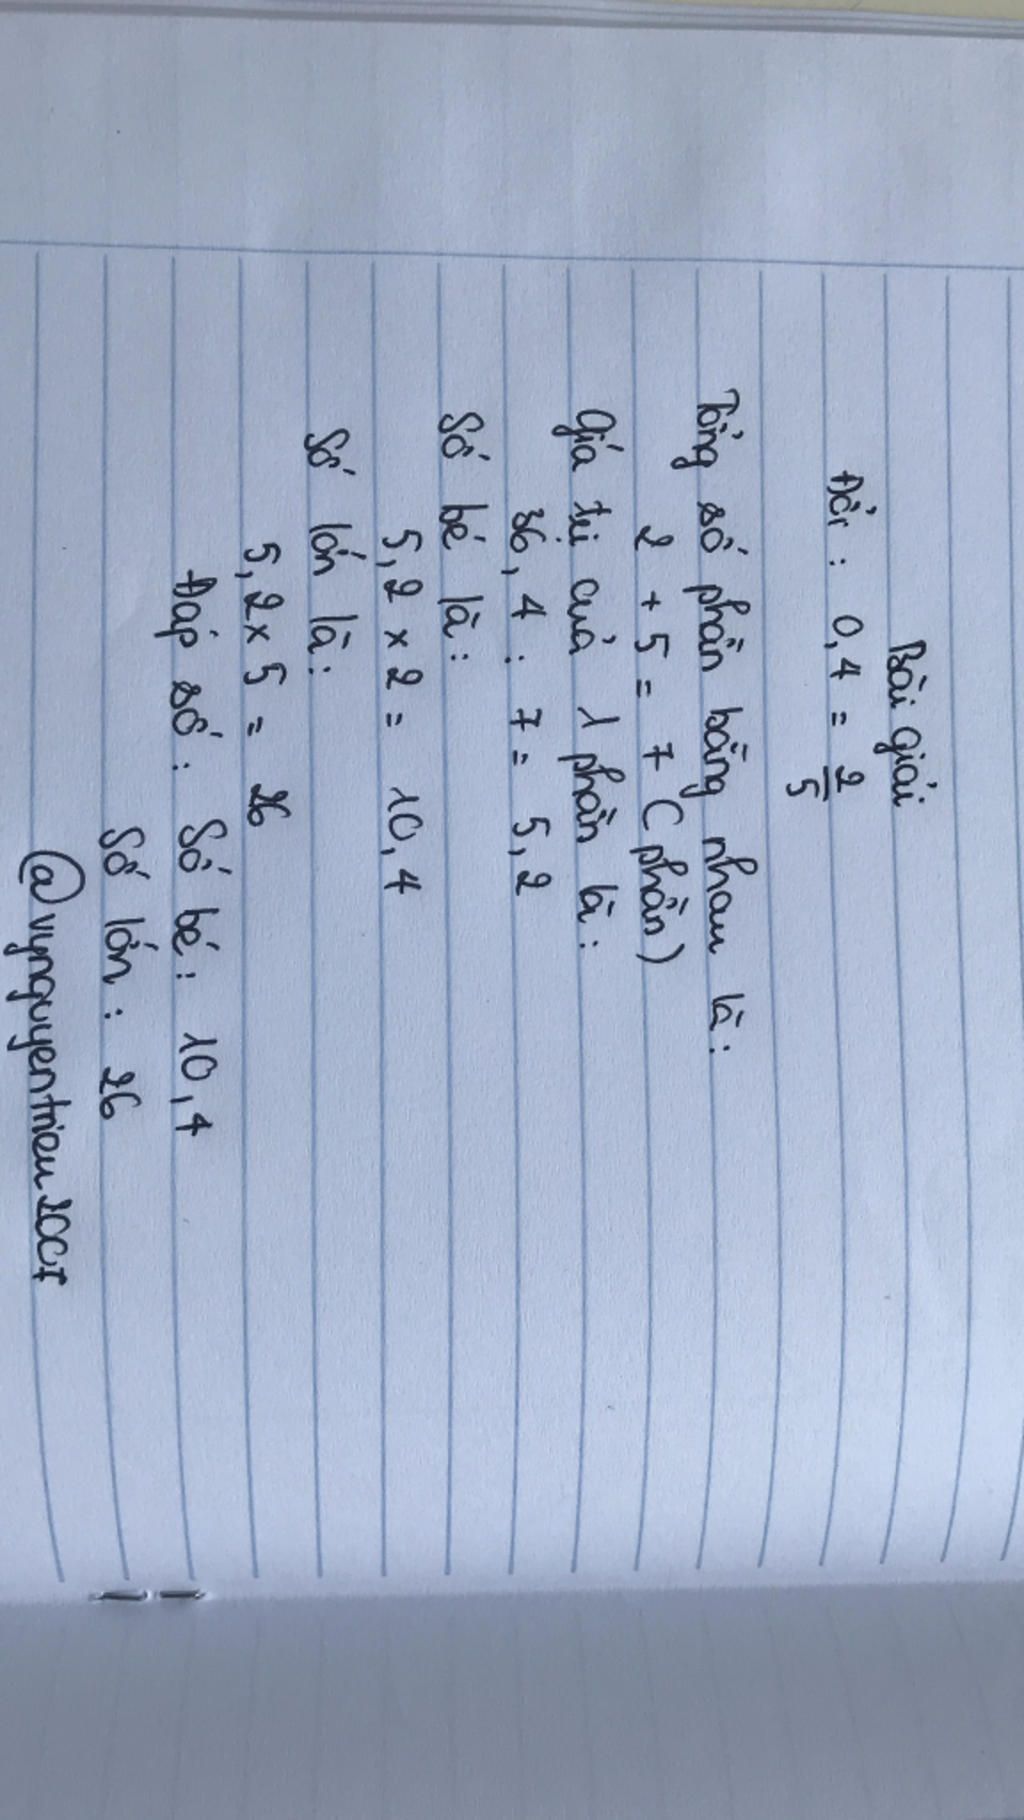 Bài giải
Đổi : 0,4 = 2/5
Tổng số phần bằng nhau là :
2 + 5 = 7 ( phần )
Giá trị của 1 phần là :
36,4 : 7 = 5,2
Số bé là :
5,2 x 2 = 10,4
Số lớn là :
5,2 x 5 = 26
Đáp số : Số bé : 10,4
Số lớn : 26